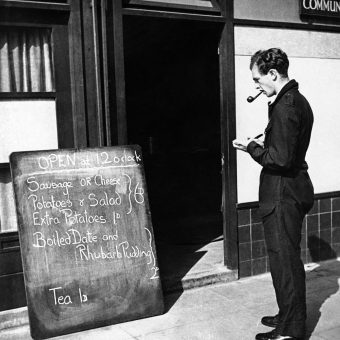 COMMUN
OPEN at 12 o'clock
Sausage or Cheese
Potatoes & Salad } 6
Extra Potatoes 1
Boiled Date and
Rhubarb Pudding } 2
Tea 1